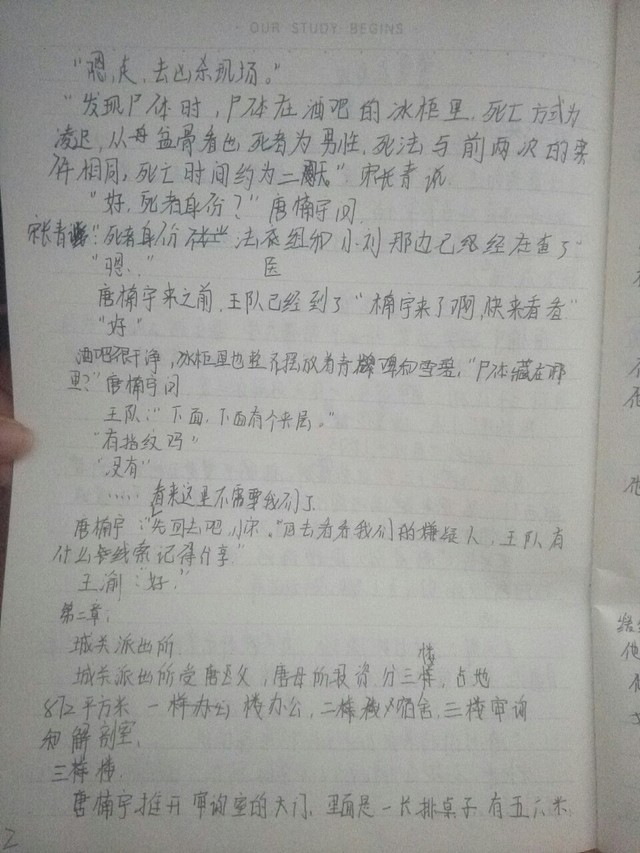 OUR STUDY BEGINS
"嗯,走,去凶杀现场。"
"发现尸体时,尸体在酒吧的冰柜里,死亡方式为
凌迟,从骨盆骨看出死者为男性,死法与前两次的案
件相同,死亡时间约为二天"宋长青说
"好,死者身份?"唐楠宇问
宋长青:"死者身份 法医组和小刘那边已经在查了"
"嗯.."
唐楠宇来之前,王队已经到了"楠宇来了啊,快来看看"
"好"
酒吧很干净,冰柜里也整齐摆放着青啤和雪花,"尸体藏在那
里?"唐楠宇问
王队:"下面,下面有个夹层。"
"有指纹吗"
"没有"
……看来这里不需要我们了
唐楠宇:"先回去吧,小宋。"回去看看我们的嫌疑人,王队有
什么线索记得分享"
王渝:"好"
第二章:
城关派出所
城关派出所受唐父,唐母所投资,分三栋,占地
872平方米 一栋办公楼办公,二栋宿舍,三楼审讯
和解剖室.
三栋楼.
唐楠宇推开审询室的大门,里面是一长排桌子有五六米
2